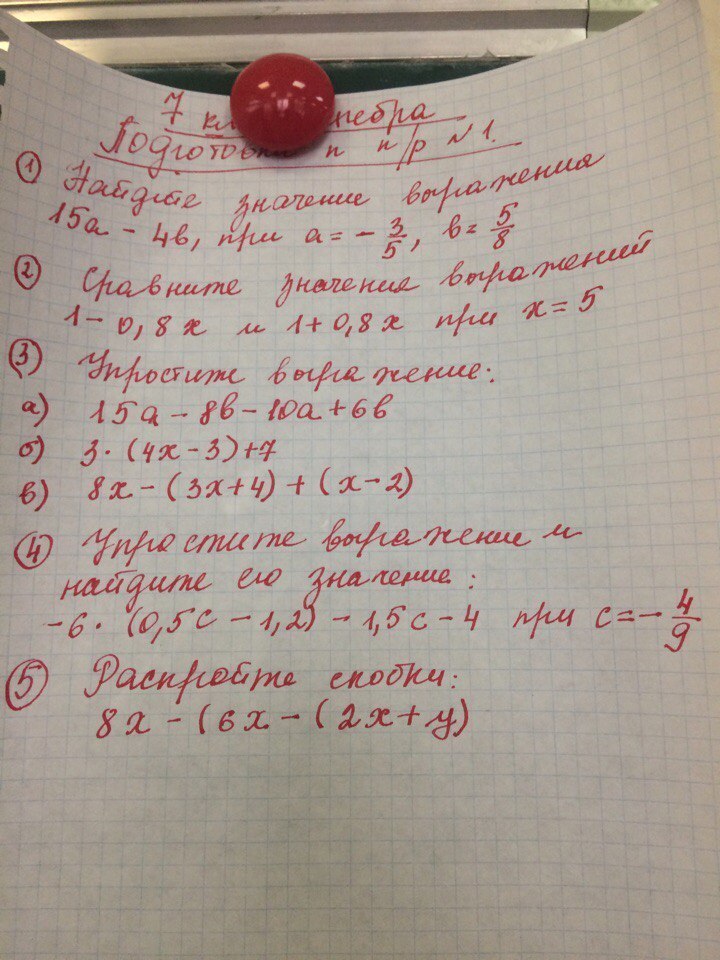 7
Подготовка к к/р №1.
① Найдите значение выражения
15a - 4b, при a = - 3/5, b = 5/8
② Сравните значения выражений
1 - 0,8x и 1 + 0,8x при x = 5
③ Упростите выражение:
а) 15a - 8b - 10a + 6b
б) 3 · (4x - 3) + 7
в) 8x - (3x + 4) + (x - 2)
④ Упростите выражение и
найдите его значение:
-6 · (0,5c - 1,2) - 1,5c - 4 при c = - 4/9
⑤ Раскройте скобки:
8x - (6x - (2x + y)